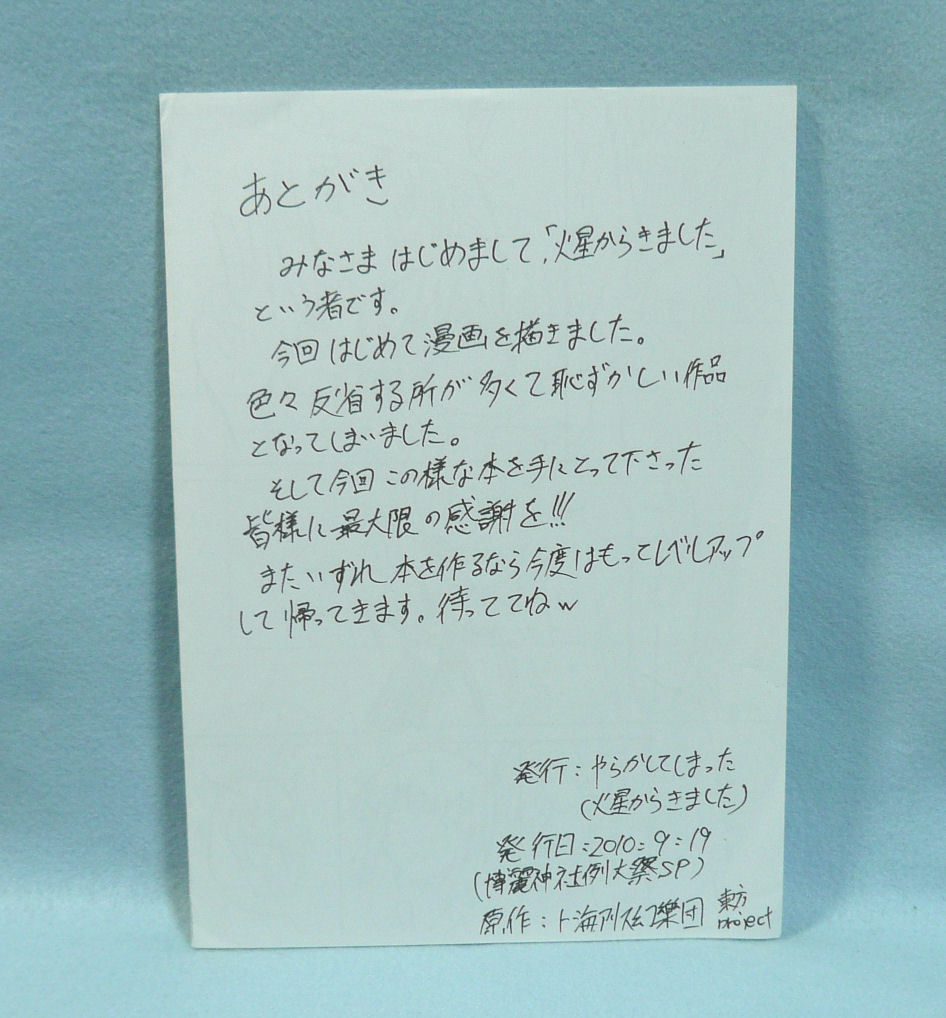 あとがき
みなさま はじめまして、「火星からきました」
という者です。
今回 はじめて漫画を描きました。
色々 反省する所が 多くて恥ずかしい作品
となってしまいました。
そして今回 この様な本を手にとって下さった
皆様に最大限の感謝を!!!
またいずれ 本を作るなら今度はもってレベルアップ
して帰ってきます。待っててねw
発行：やらかしてしまった
(火星からきました)
発行日：2010：9：19
(博麗神社例大祭SP)
原作：上海アリス幻樂団 東方project